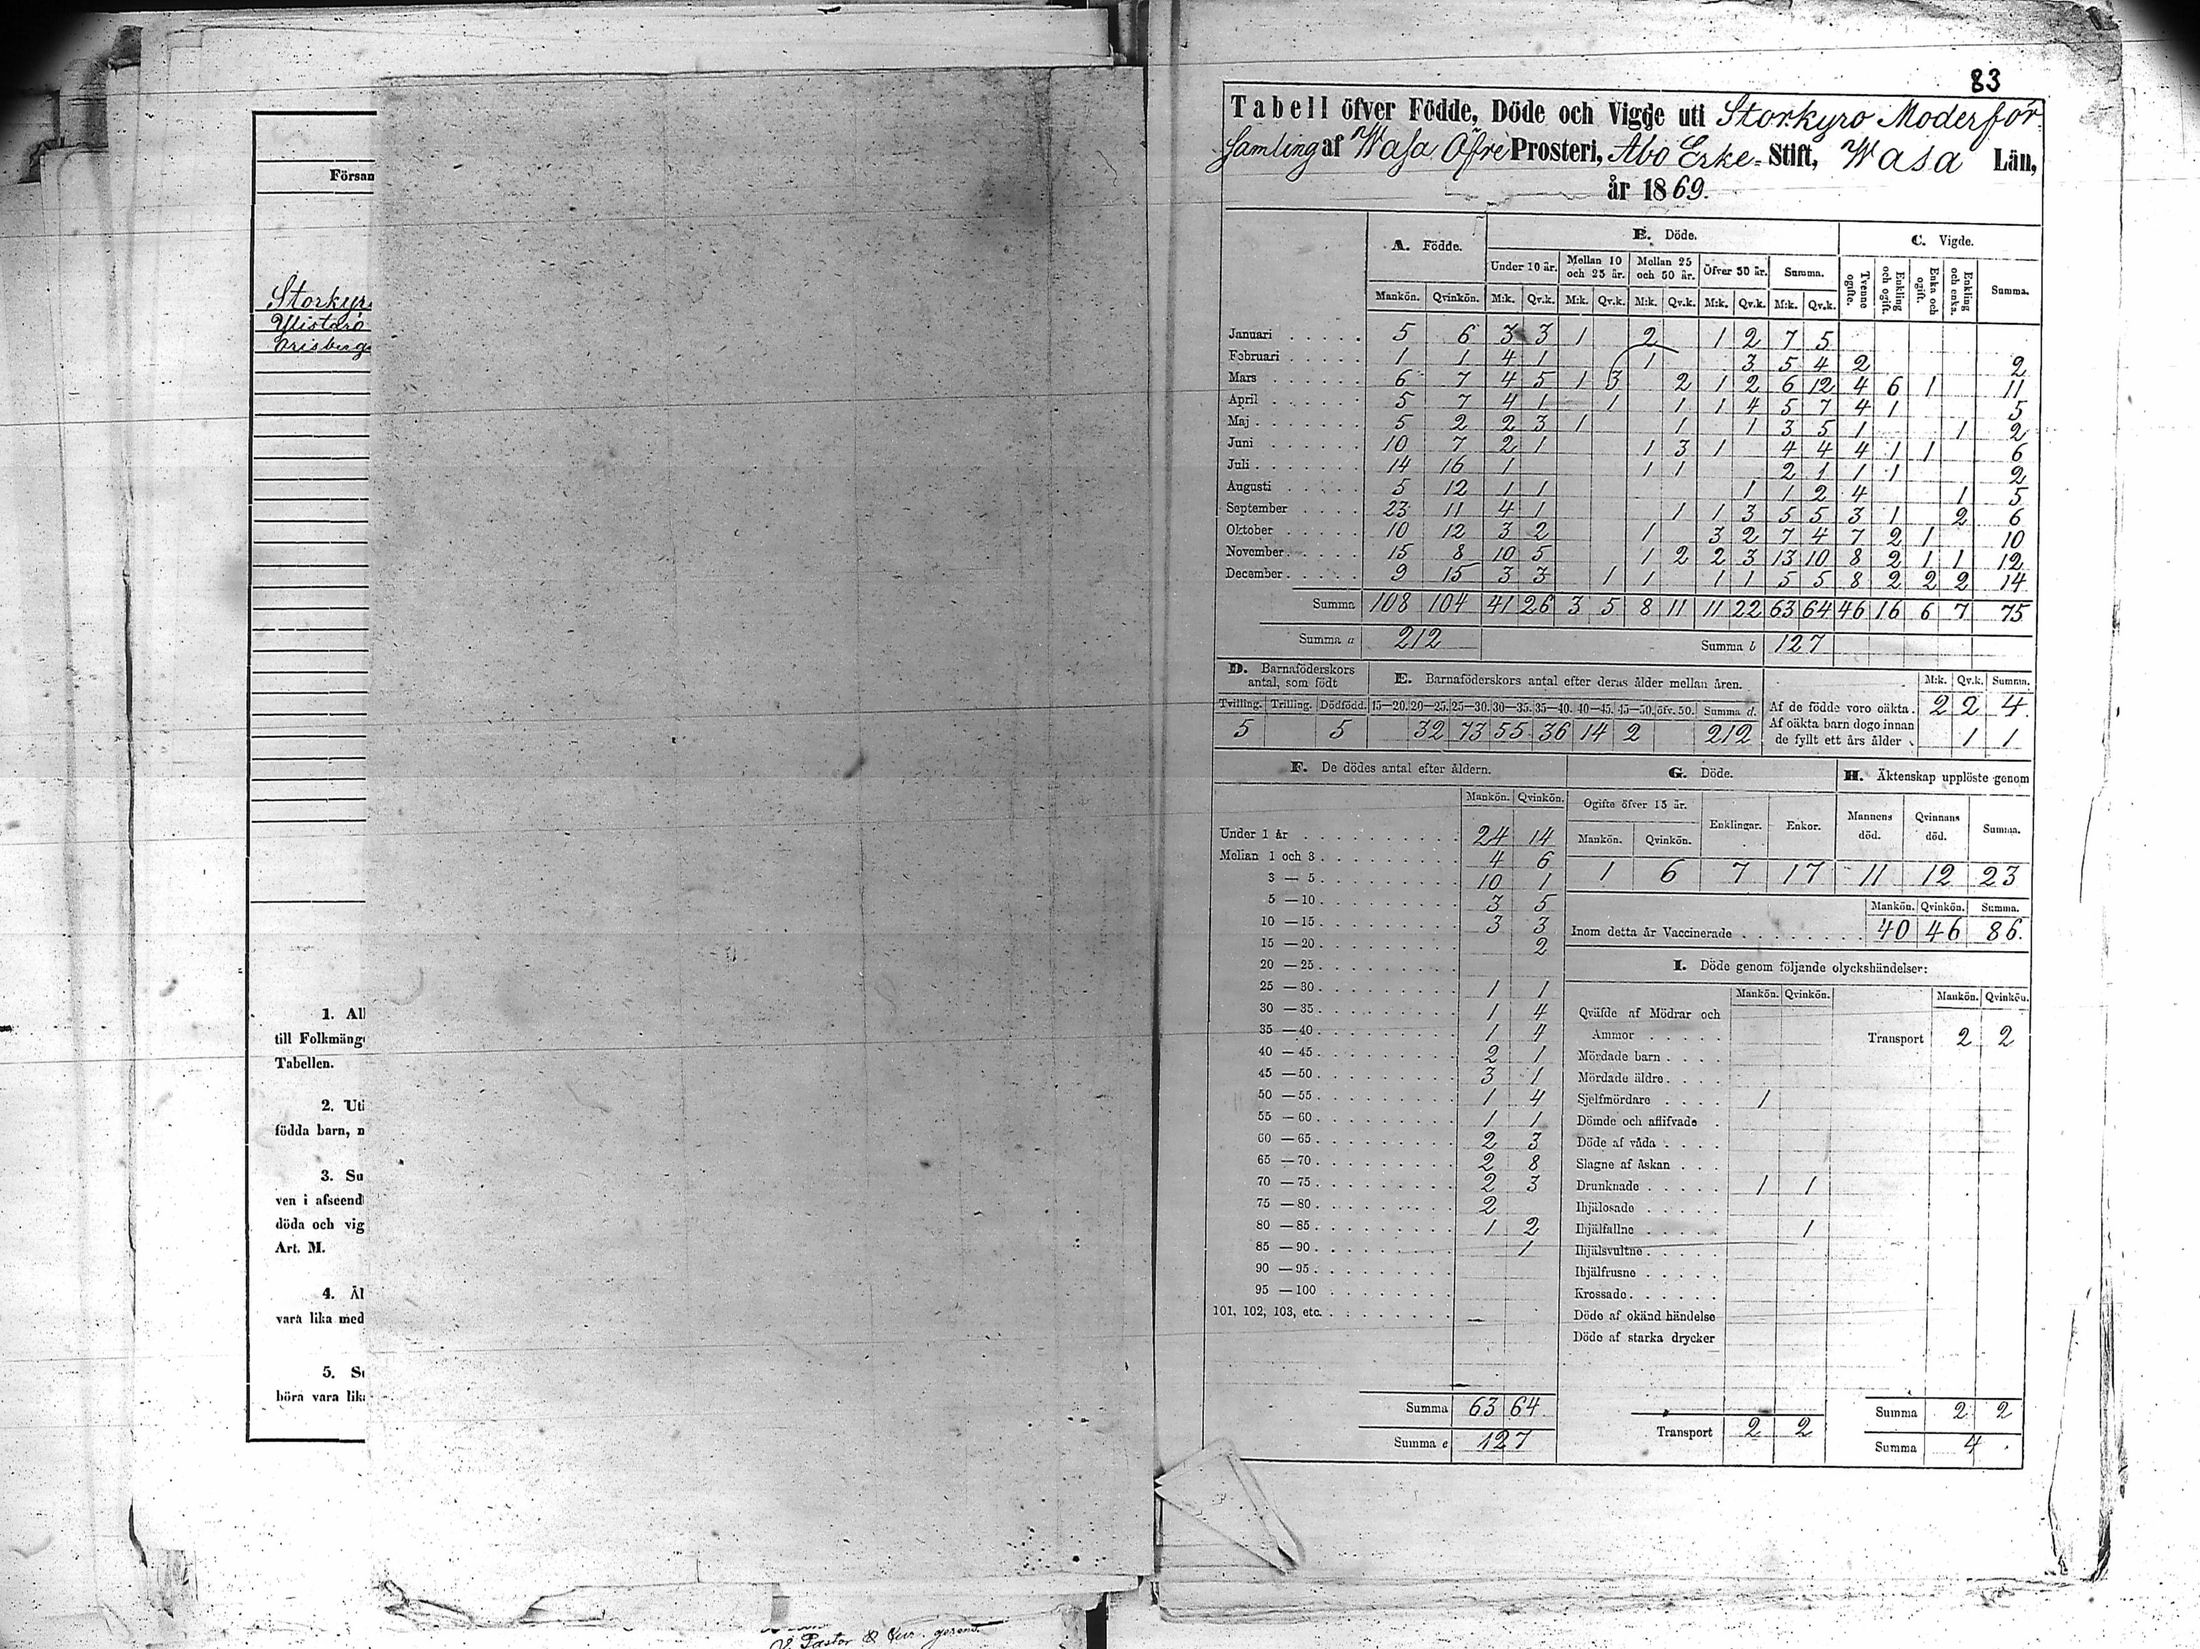 Försam
Storkyro
Ylistaro
Orisberg
1. All
till Folkmäng
Tabellen.
2. Uti
födda barn, n
3. Su
ven i afseend
döda och vig
Art. M.
4. Äl
vara lika med
5. Su
böra vara lik
V. Pastor
83
Tabell öfver Födde, Döde och Vigde uti Storkyro Moderför
samling af Wasa Öfre Prosteri, Åbo Erke- Stift, Wasa Län,
år 1869.
A. Födde. B. Döde. C. Vigde.
Under 10 år. Mellan 10 och 25 år. Mellan 25 och 50 år. Öfver 50 år. Summa. Tvenne ogifte. Enkling och ogift. Enka och ogift. Enkling och enka. Summa.
Mankön. Qvinkön. M:k. Qv.k. M:k. Qv.k. M:k. Qv.k. M:k. Qv.k. M:k. Qv.k.
Januari 5 6 3 3 1 2 1 2 7 5
Februari 1 1 4 1 1 3 5 4 2 2
Mars 6 7 4 5 1 3 2 1 2 6 12 4 6 1 11
April 5 7 4 1 1 1 1 4 5 7 4 1 5
Maj 5 2 2 3 1 1 1 3 5 1 1 2
Juni 10 7 2 1 1 3 1 4 4 4 1 1 6
Juli 14 16 1 1 1 2 1 1 1 2
Augusti 5 12 1 1 1 1 2 4 1 5
September 23 11 4 1 1 1 3 5 5 3 1 2 6
Oktober 10 12 3 2 1 3 2 7 4 7 2 1 10
November 15 8 10 5 1 2 2 3 13 10 8 2 1 1 12
December 9 15 3 3 1 1 1 1 5 5 8 2 2 2 14
Summa 108 104 41 26 3 5 8 11 11 22 63 64 46 16 6 7 75
Summa a 212 Summa b 127
D. Barnaföderskors antal, som födt
E. Barnaföderskors antal efter deras ålder mellan åren.
M:k. Qv.k. Summa.
Tvilling. Trilling. Dödfödd. 15—20. 20—25. 25—30. 30—35. 35—40. 40—45. 45—50. öfv. 50. Summa d.
5 5 32 73 55 36 14 2 212
Af de födde voro oäkta. 2 2 4.
Af oäkta barn dogo innan
de fyllt ett års ålder 1 1
F. De dödes antal efter åldern.
Mankön. Qvinkön.
Under 1 år 24 14
Mellan 1 och 3 4 6
3 — 5 10 1
5 — 10 3 5
10 — 15 3 3
15 — 20 2
20 — 25
25 — 30 1 1
30 — 35 1 4
35 — 40 1 4
40 — 45 2 1
45 — 50 3 1
50 — 55 1 4
55 — 60 1 1
60 — 65 2 3
65 — 70 2 8
70 — 75 2 3
75 — 80 2
80 — 85 1 2
85 — 90 1
90 — 95
95 — 100
101, 102, 103, etc.
Summa 63 64
Summa e 127
G. Döde.
Ogifte öfver 15 år. Enklingar. Enkor.
Mankön. Qvinkön.
1 6 7 17
H. Äktenskap upplöste genom
Mannens död. Qvinnans död. Summa.
11 12 23
Mankön. Qvinkön. Summa.
Inom detta år Vaccinerade 40 46 86.
I. Döde genom följande olyckshändelser:
Mankön. Qvinkön. Mankön. Qvinkön.
Qväfde af Mödrar och
Ammor
Transport 2 2
Mördade barn
Mördade äldre
Sjelfmördare 1
Dömde och aflifvade
Döde af våda
Slagne af åskan
Drunknade 1 1
Ihjälosade
Ihjälfallne 1
Ihjälsvultne
Ihjälfrusne
Krossade
Döde af okänd händelse
Döde af starka drycker
Transport 2 2
Summa 2 2
Summa 4